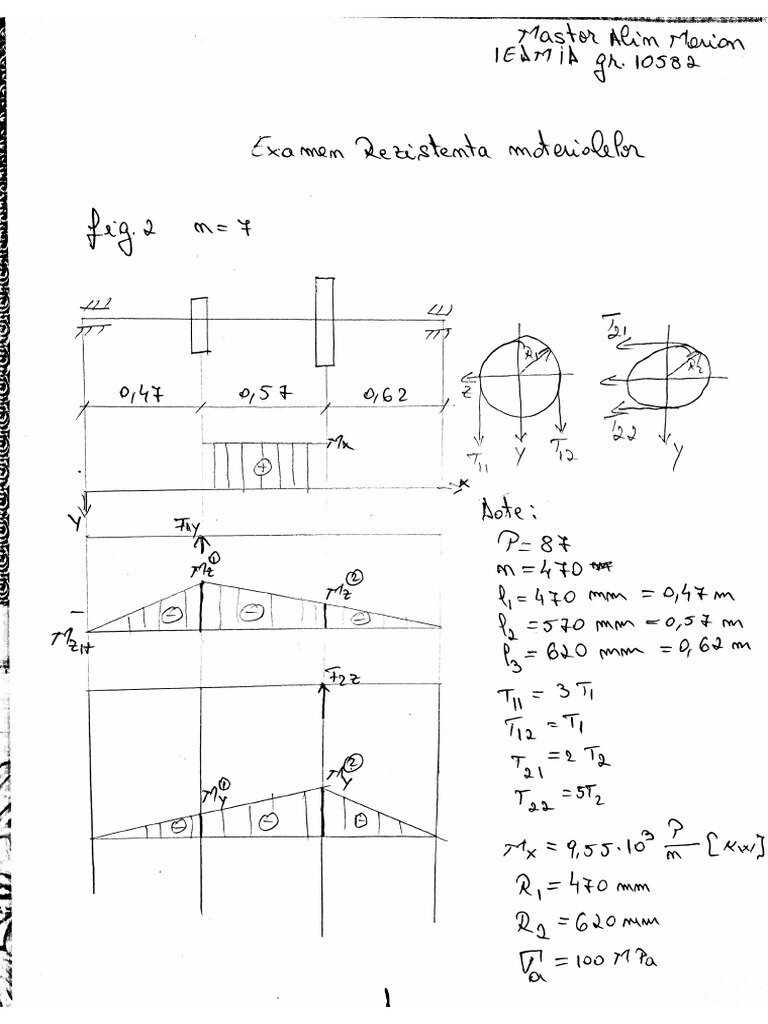 Mastor Alin Merion
IEAMIA gr. 10582
Examen Rezistenta moteriolelor
fig. 2 n = 7
0,47 0,57 0,62
Mx
+
x
Y
R1
Z
T11 Y T12
T21
R2
T22 Y
F1Y
Mz①
Mz②
−
Mz1t
− − −
F2Z
MY①
MY②
− − −
Dote:
P = 87
n = 470
l1 = 470 mm = 0,47 m
l2 = 570 mm = 0,57 m
l3 = 620 mm = 0,62 m
T11 = 3 T1
T12 = T1
T21 = 2 T2
T22 = 5T2
Mx = 9,55·10³ P/n [KW]
R1 = 470 mm
R2 = 620 mm
σa = 100 MPa
1